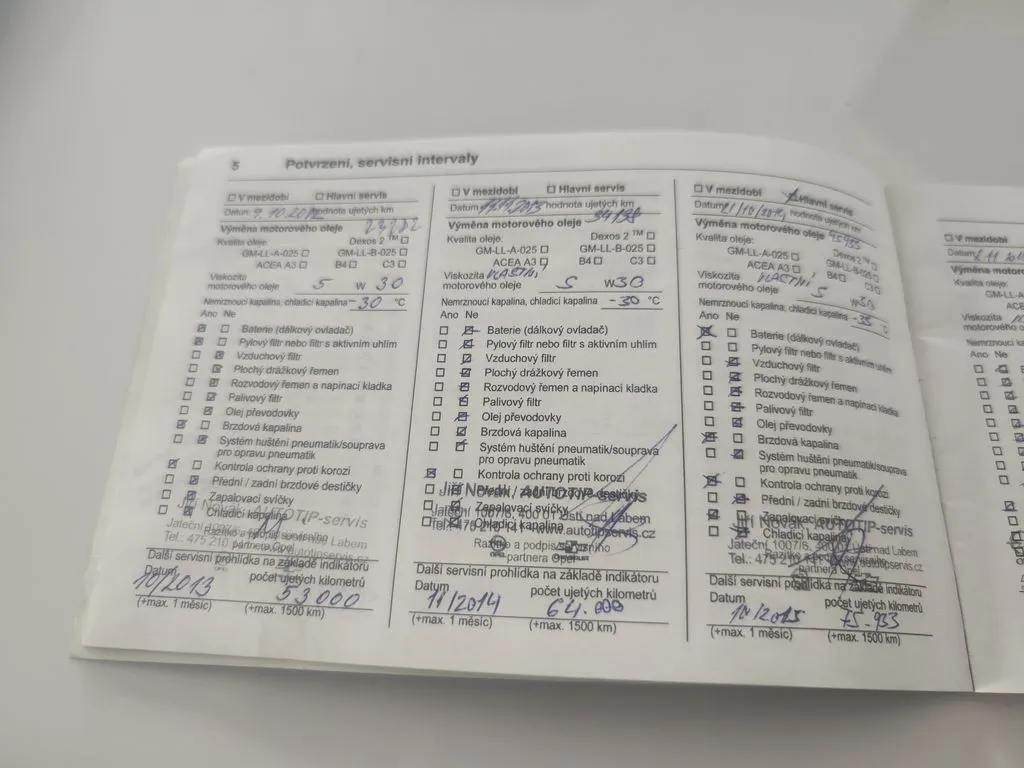 5 Potvrzení, servisní intervaly
☐ V mezidobí ☐ Hlavní servis
Datum: 9.10.2012 hodnota ujetých km
Výměna motorového oleje
Kvalita oleje: Dexos 2 ™ ☐
GM-LL-A-025 ☐ GM-LL-B-025 ☐
ACEA A3 ☐ B4 ☐ C3 ☐
Viskozita
motorového oleje 5 W 30
Nemrznoucí kapalina, chladicí kapalina -30 °C
Ano Ne
☒ ☐ Baterie (dálkový ovladač)
☒ ☐ Pylový filtr nebo filtr s aktivním uhlím
☐ ☒ Vzduchový filtr
☐ ☒ Plochý drážkový řemen
☐ ☒ Rozvodový řemen a napínací kladka
☐ ☒ Palivový filtr
☐ ☒ Olej převodovky
☒ ☐ Brzdová kapalina
☐ ☒ Systém huštění pneumatik/souprava
pro opravu pneumatik
☒ ☐ Kontrola ochrany proti korozi
☐ ☒ Přední / zadní brzdové destičky
☐ ☒ Zapalovací svíčky
☐ ☒ Chladicí kapalina
Jiří Novák, AUTOTIP-servis
Jateční 1007/6, Labem
Tel.: 475 210 autotipservis.cz
partnera Opel
Další servisní prohlídka na základě indikátoru
Datum počet ujetých kilometrů
10/2013 53000
(+max. 1 měsíc) (+max. 1500 km)
☐ V mezidobí ☐ Hlavní servis
Datum hodnota ujetých km
Výměna motorového oleje
Kvalita oleje: Dexos 2 ™ ☐
GM-LL-A-025 ☐ GM-LL-B-025 ☐
ACEA A3 ☐ B4 ☐ C3 ☐
Viskozita VLASTNÍ
motorového oleje 5 W30
Nemrznoucí kapalina, chladicí kapalina -30 °C
Ano Ne
☐ ☒ Baterie (dálkový ovladač)
☐ ☒ Pylový filtr nebo filtr s aktivním uhlím
☐ ☒ Vzduchový filtr
☐ ☒ Plochý drážkový řemen
☐ ☒ Rozvodový řemen a napínací kladka
☐ ☒ Palivový filtr
☐ ☒ Olej převodovky
☐ ☒ Brzdová kapalina
☐ ☒ Systém huštění pneumatik/souprava
pro opravu pneumatik
☒ ☐ Kontrola ochrany proti korozi
Jiří Novák, AUTOTIP-servis
Zapalovací svíčky
Jateční 1007/6, 400 01 Ústí nad Labem
Chladicí kapalina
Tel.: 475 210 141 www.autotipservis.cz
Razítko a podpis servisního
partnera Opel
Další servisní prohlídka na základě indikátoru
Datum počet ujetých kilometrů
11/2014 64.000
(+max. 1 měsíc) (+max. 1500 km)
☐ V mezidobí ☒ Hlavní servis
Datum 21/10/2014 hodnota ujetých km
Výměna motorového oleje 45933
Kvalita oleje: Dexos 2 ™ ☐
GM-LL-A-025 ☐ GM-LL-B-025 ☐
ACEA A3 ☐ B4 ☐ C3 ☐
Viskozita VLASTNÍ
motorového oleje 5 W30
Nemrznoucí kapalina, chladicí kapalina -35 °C
Ano Ne
☒ ☐ Baterie (dálkový ovladač)
Pylový filtr nebo filtr s aktivním uhlím
Vzduchový filtr
Plochý drážkový řemen
Rozvodový řemen a napínací kladka
Palivový filtr
Olej převodovky
Brzdová kapalina
Systém huštění pneumatik/souprava
pro opravu pneumatik
Kontrola ochrany proti korozi
Přední / zadní brzdové destičky
Zapalovací svíčky
Jiří Novák, AUTOTIP-servis
Chladicí kapalina
Jateční 1007/6, 400 Ústí nad Labem
Tel.: 475 210 autotipservis.cz
partnera Opel
Další servisní prohlídka na základě indikátoru
Datum počet ujetých kilometrů
10/2015 75.933
(+max. 1 měsíc) (+max. 1500 km)
☐ V mezidobí
Datum
Kvalita oleje:
GM-LL-A
ACE
Viskozita
Nemrznoucí ka
Ano Ne